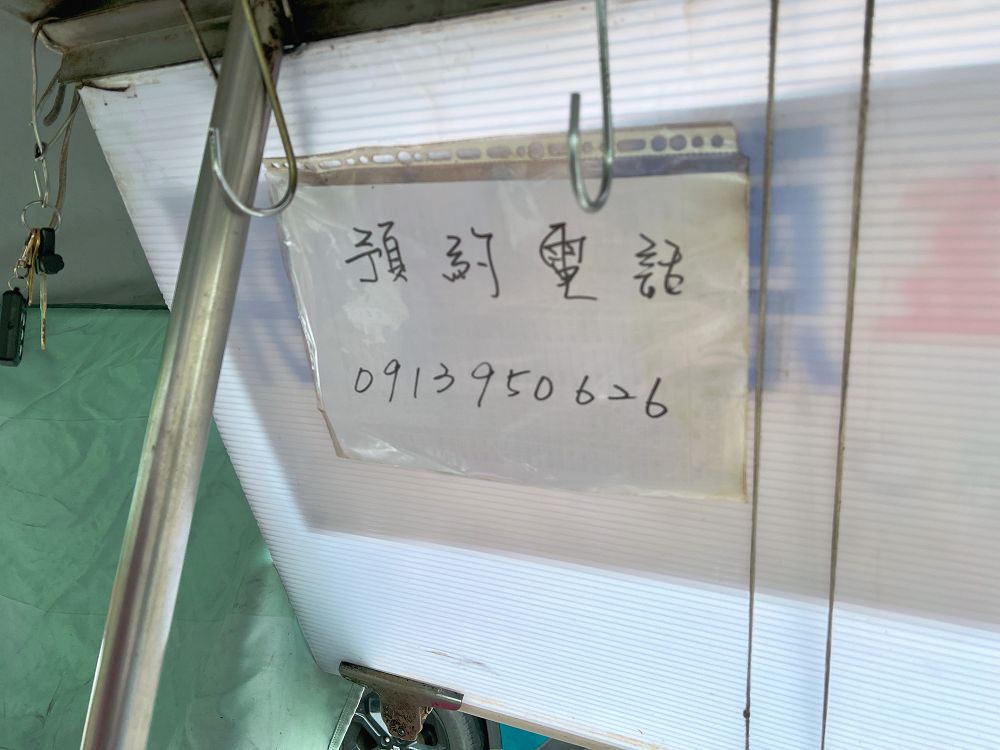 預約電話
0913950626